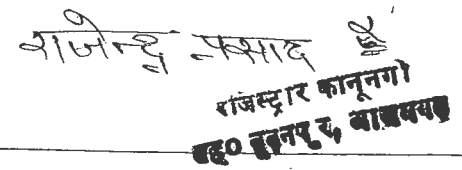 राजेन्द्र प्रसाद
रजिस्ट्रार कानूनगो
तह० बूढ़नपुर, आजमगढ़